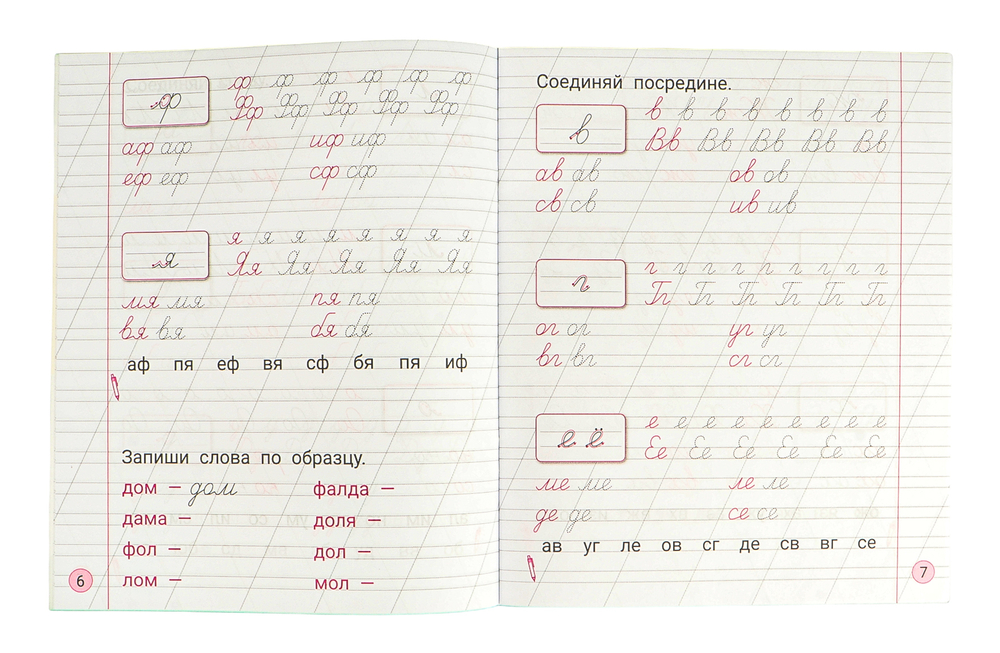 ф ф ф ф ф ф ф
Фф Фф Фф Фф Фф
аф аф иф иф
еф еф сф сф
я я я я я я я я
Яя Яя Яя Яя Яя
мя мя пя пя
вя вя бя бя
аф пя еф вя сф бя пя иф
Запиши слова по образцу.
дом – дом фалда –
дама – доля –
фол – дол –
лом – мол –
6
Соединяй посредине.
в в в в в в в в
в
Вв Вв Вв Вв Вв
ав ав ов ов
св св ив ив
г г г г г г г г г
г
Гг Гг Гг Гг Гг Гг
ог ог уг уг
вг вг сг сг
е е е е е е е е е
е ё
Ее Ее Ее Ее Ее Ее
ме ме ле ле
де де се се
ав уг ле ов сг де св вг се
7